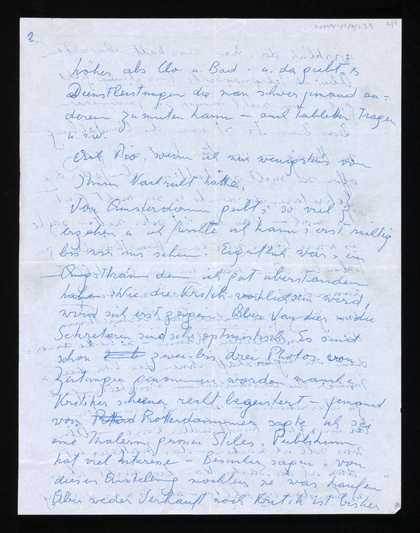 2.
höher als Clo u. Bad - u. da giebt's
Dienstleistungen die man schwer jemand an-
derem zumuten kann - auch Tabletten Tragen
u. s. w.
wenn ich nur wenigstens von
Ihnen Nachricht hätte,
Von Amsterdam giebt's so viel z.
erzählen u. ich fürchte ich kann's erst richtig
bis wir uns sehen. Eigentlich war's ein
den ich gut überstanden
habe. Wie die Kritik wird,
wird sich erst zeigen. Aber van der
Sekretärin sind sehr optimistisch. Es sind
schon zwei bis drei Photos von
Zeitungen genommen worden manche
Kritiker scheinen recht begeistert - jemand
von Rotterdammer sagte ich sei
eine Malerin grossen Stiles. Publikum
hat viel Interesse - Besucher sagen, von
dieser Ausstellung möchten sie was kaufen"
Aber weder Verkauft noch Kritik ist bisher